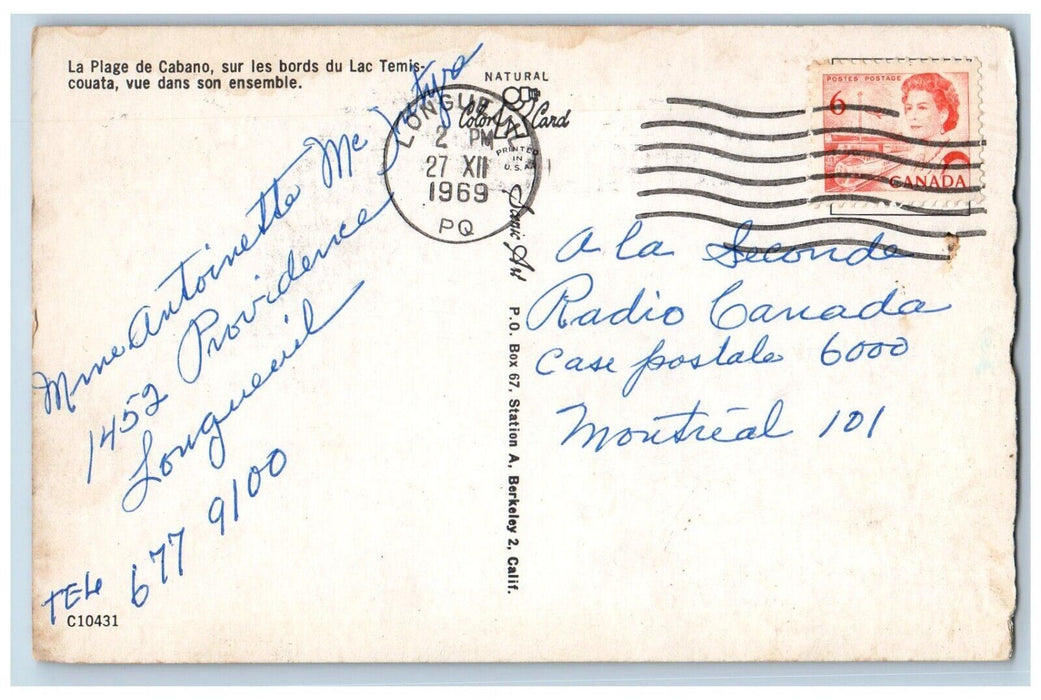 La Plage de Cabano, sur les bords du Lac Temis-
couata, vue dans son ensemble.
NATURAL
Color Card
PRINTED
IN
U.S.A.
LONGUEUIL
2 PM
27 XII
1969
PQ
POSTES POSTAGE
6
CANADA
Mme Antoinette Mc
1452 Providence
Longueuil
TEL 677 9100
C10431
Scenic Art P.O. Box 67, Station A, Berkeley 2, Calif.
A la Seconde
Radio Canada
Case postale 6000
Montréal 101